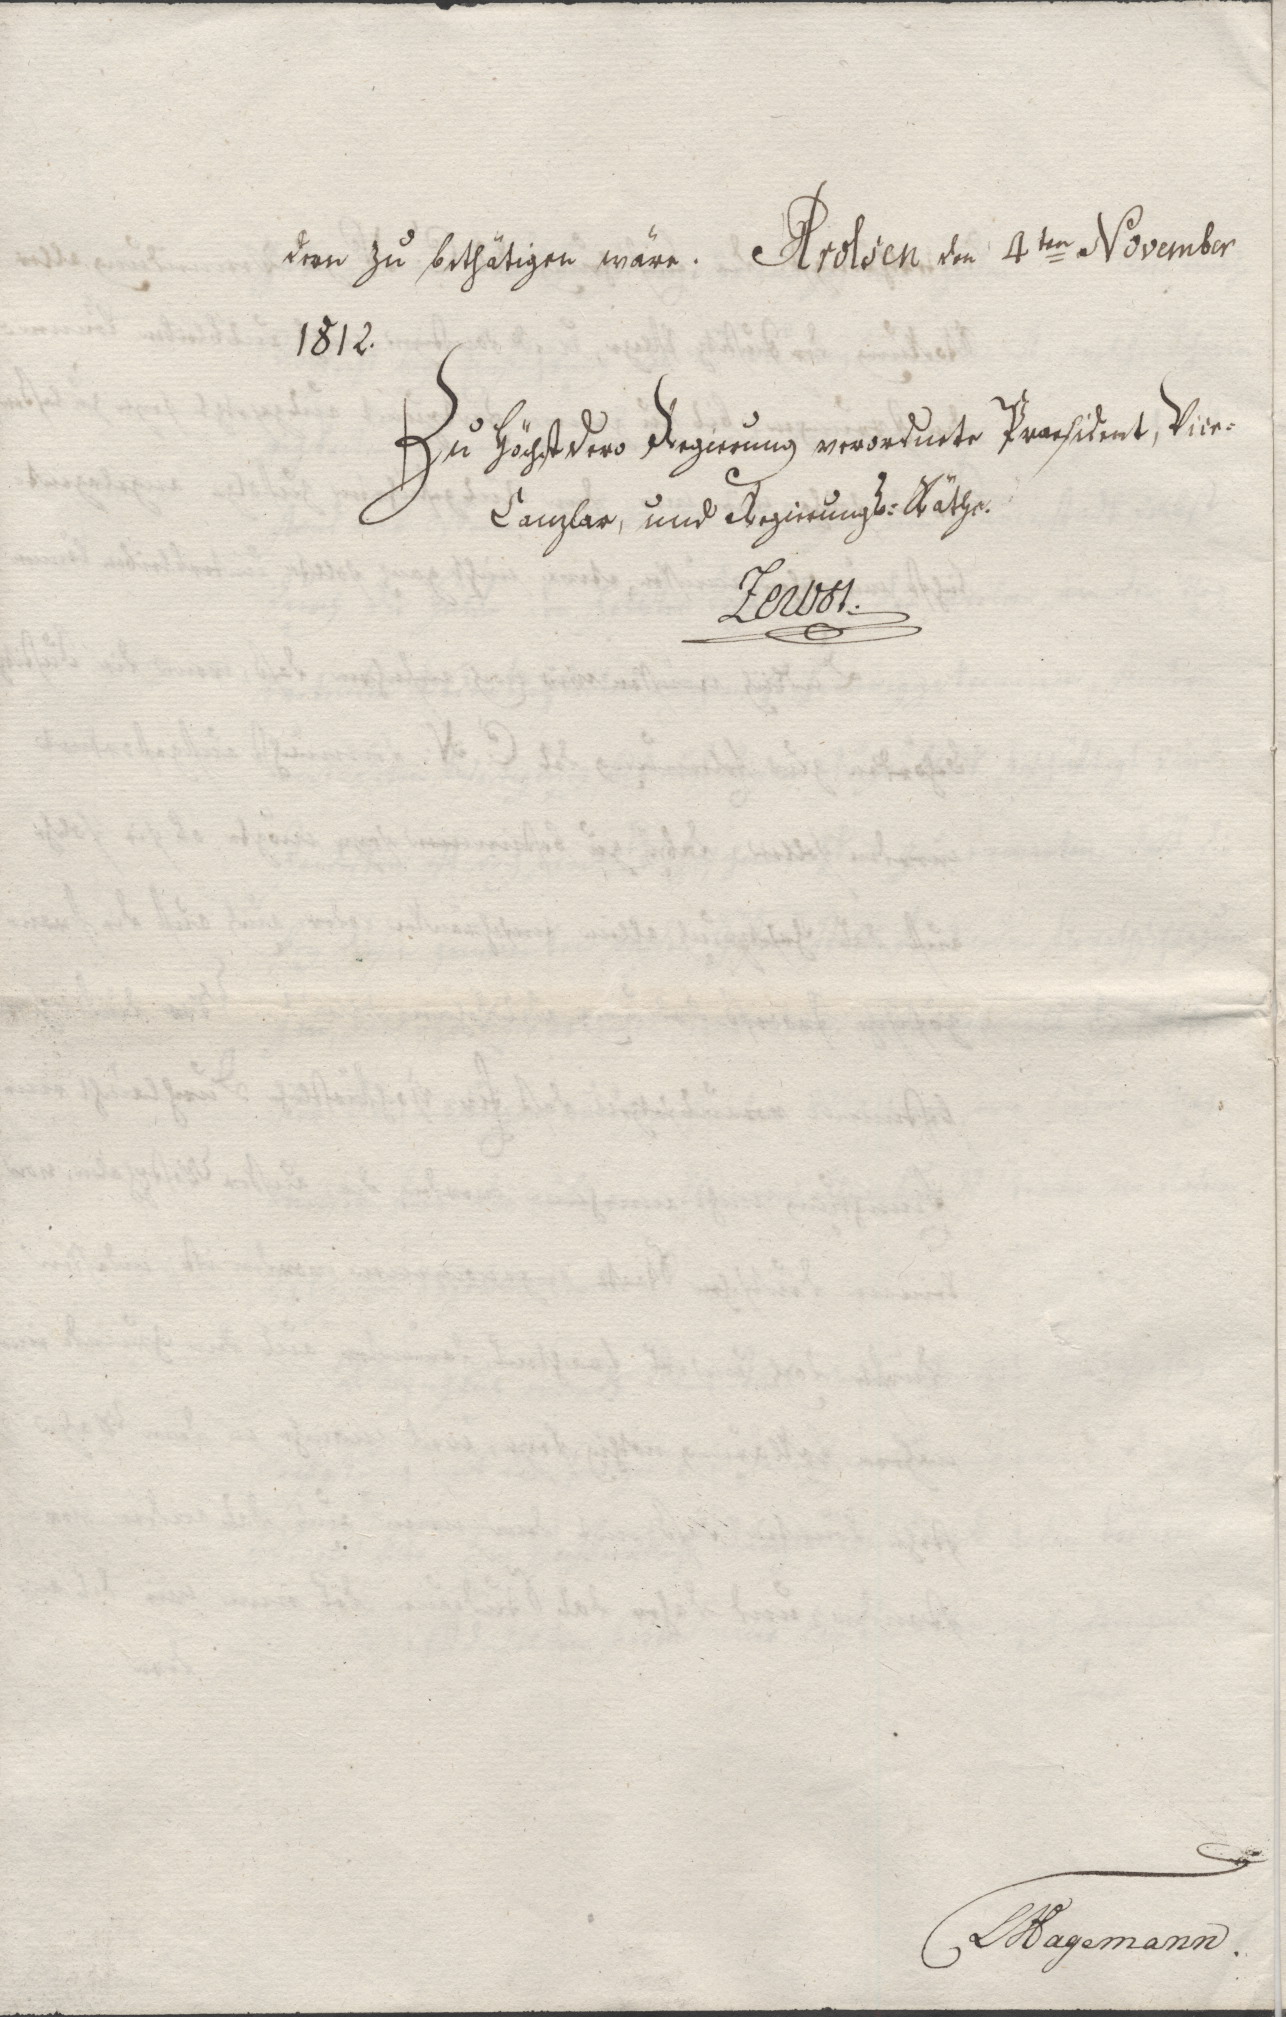 dern zu bethätigen wäre. Arolsen den 4ten November
1812.
Zu Höchstdero Regierung verordnete Praesident, Vice-
Canzlar, und Regierungs-Räthe.
Zerbst.
Hagemann.